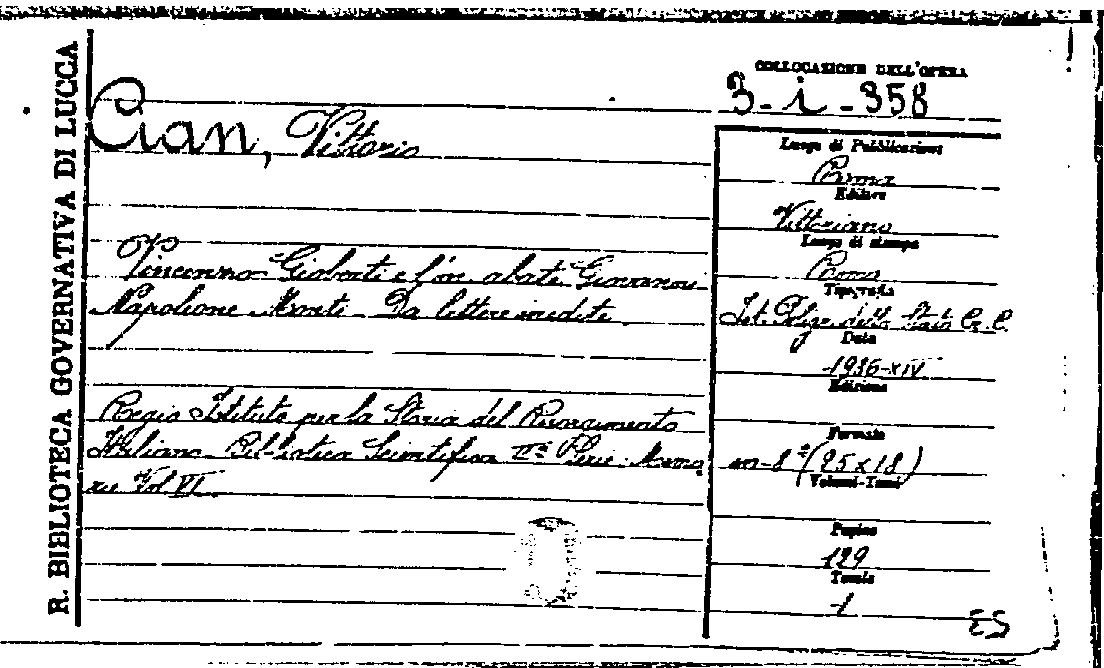 R. BIBLIOTECA GOVERNATIVA DI LUCCA
COLLOCAZIONE DELL'OPERA
3-i-358
Cian, Vittorio
Vincenzo Gioberti e l'on. abate Giovanni
Napoleone Monti - Da lettere inedite
Regio Istituto per la Storia del Risorgimento
Italiano - Biblioteca Scientifica IIª Serie: Memo
rie Vol VI
Luogo di Pubblicazione
Roma
Editore
Vittoriano
Luogo di stampa
Roma
Tipografia
Ist. Poligr. dello Stato G. C.
Data
1936-XIV
Edizione
Formato
in-8° (25x18)
Volumi-Tomi
Pagine
129
Tavole
1
ES